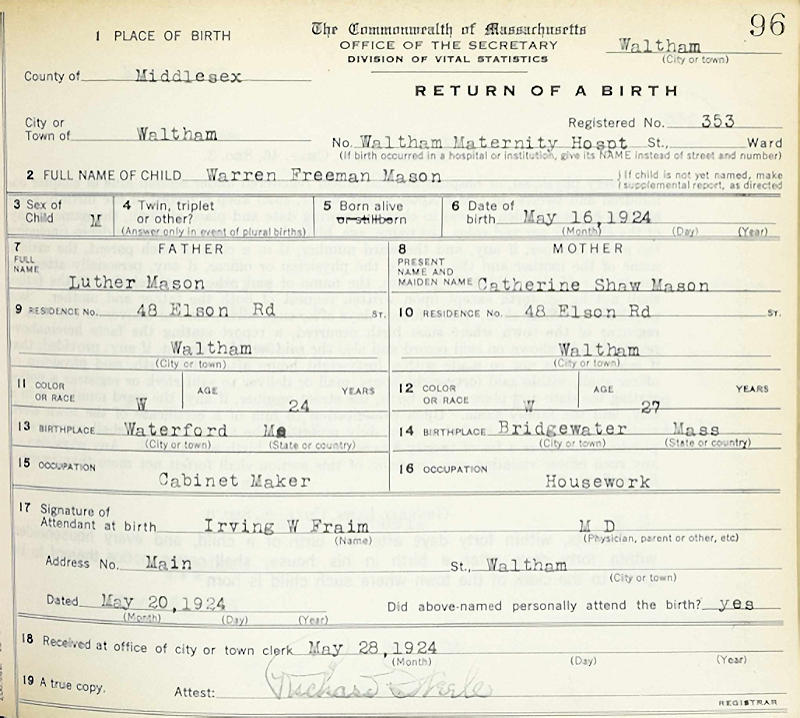 96
1 PLACE OF BIRTH
The Commonwealth of Massachusetts
OFFICE OF THE SECRETARY
DIVISION OF VITAL STATISTICS
Waltham
(City or town)
County of Middlesex
RETURN OF A BIRTH
City or
Town of Waltham
Registered No. 353
No. Waltham Maternity Hospt St., Ward
(If birth occurred in a hospital or institution, give its NAME instead of street and number)
2 FULL NAME OF CHILD Warren Freeman Mason
} If child is not yet named, make
supplemental report, as directed
3 Sex of
Child M
4 Twin, triplet
or other?
(Answer only in event of plural births)
5 Born alive
or stillborn
6 Date of
birth May 16,1924
(Month) (Day) (Year)
7 FATHER
FULL
NAME
Luther Mason
8 MOTHER
PRESENT
NAME AND
MAIDEN NAME Catherine Shaw Mason
9 RESIDENCE No. 48 Elson Rd ST.
10 RESIDENCE No. 48 Elson Rd ST.
Waltham
(City or town)
Waltham
(City or town)
11 COLOR
OR RACE W AGE 24 YEARS
12 COLOR
OR RACE W AGE 27 YEARS
13 BIRTHPLACE Waterford Me
(City or town) (State or country)
14 BIRTHPLACE Bridgewater Mass
(City or town) (State or country)
15 OCCUPATION
Cabinet Maker
16 OCCUPATION
Housework
17 Signature of
Attendant at birth Irving W Fraim M D
(Name) (Physician, parent or other, etc)
Address No. Main St., Waltham
(City or town)
Dated May 20,1924
(Month) (Day) (Year)
Did above-named personally attend the birth? yes
18 Received at office of city or town clerk May 28,1924
(Month) (Day) (Year)
19 A true copy. Attest: Richard Steele
REGISTRAR